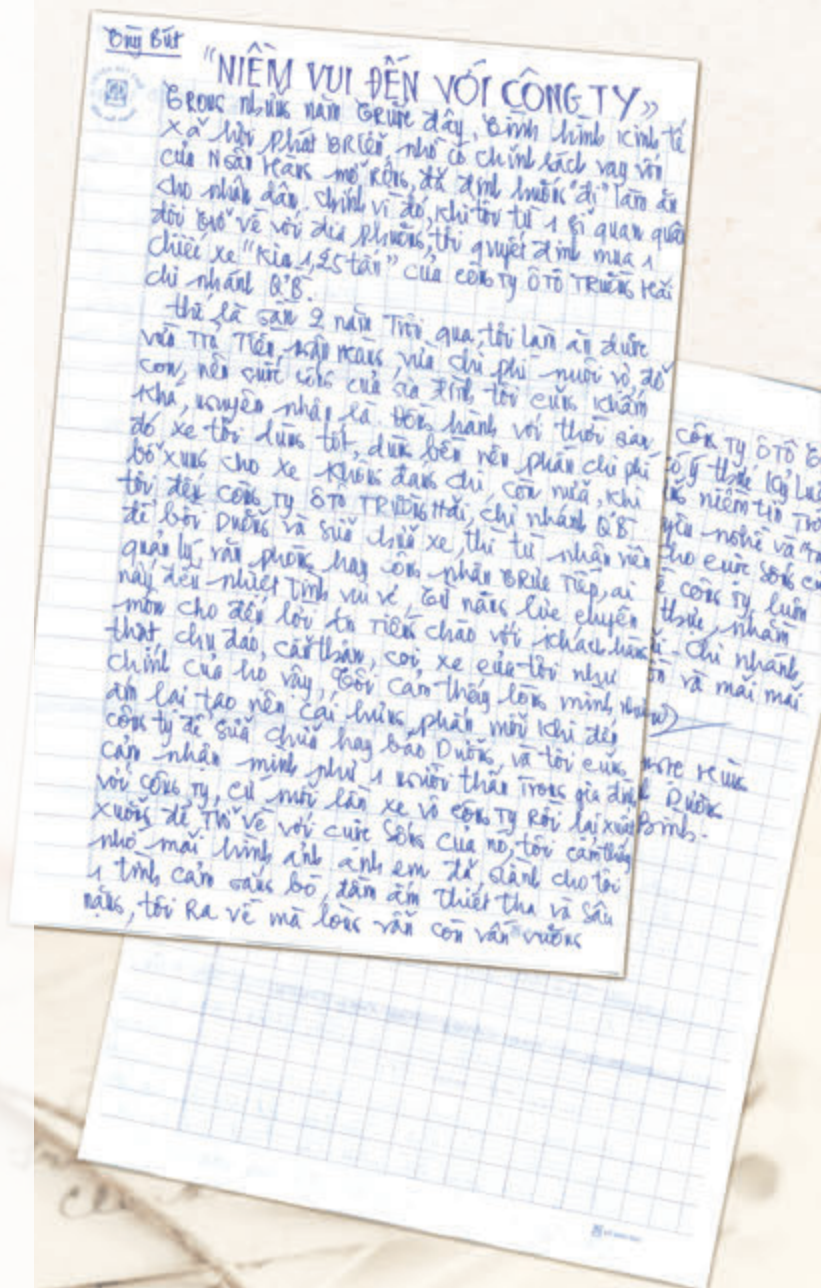 Tùy Bút
"NIỀM VUI ĐẾN VỚI CÔNG TY"
Trong những năm trước đây, tình hình kinh tế
xã hội phát triển nhờ có chính sách vay vốn
của Ngân Hàng mở rộng, đã định hướng "đi" làm ăn
cho nhân dân. Chính vì đó, khi tôi từ 1 sĩ quan quân
đội trở về với địa phương, thì quyết định mua 1
chiếc xe "Kia 1,25 tấn" của công ty Ô TÔ TRƯỜNG Hải
chi nhánh Q'B'.
thế là gần 2 năm Trôi qua, tôi làm ăn được
vừa Trả Tiền ngân Hàng, vừa chi phí nuôi vợ,
con, nên cuộc sống của gia đình tôi cũng khấm
khá, nguyên nhân là đồng hành với thời gian
đó xe tôi dùng tốt, dùng bền nên phần chi phí
bổ xung cho xe không đáng chi, còn nữa, khi
tôi đến công ty ÔTÔ TRƯỜNG Hải, chi nhánh Q'B'
để bồi Dưỡng và sửa chữa xe, thì từ nhân viên
quản lý văn phòng hay công nhân trực Tiếp, ai
nấy đều nhiệt Tình vui vẻ, từ năng lực chuyên
môn cho đến lời ăn Tiếng chào với khách hàng
thật chu đáo, cẩn thận, coi xe của tôi như
chính của họ vậy, Tôi cảm thấy lòng mình
ấm lại tạo nên cái hưng phấn mỗi khi đến
công ty để sửa chữa hay bảo Dưỡng, và tôi cũng
cảm nhận mình như 1 người thân Trong gia đình
với công ty, cứ mỗi lần xe vô công ty Rồi lại xuất
xưởng để Trở về với cuộc Sống của nó, tôi cảm thấy
nhớ mãi hình ảnh anh em đã dành cho tôi
1 tình cảm gắng bó, đầm ấm Thiết tha và Sâu
nặng, tôi Ra về mà lòng vẫn còn vấn vương
công TY ÔTÔ
có ý thức kỷ
niềm tin
nghề và
cho cuộc Sống
công ty luôn
thực, nhằm
Chi nhánh
và mãi mãi
Bình.